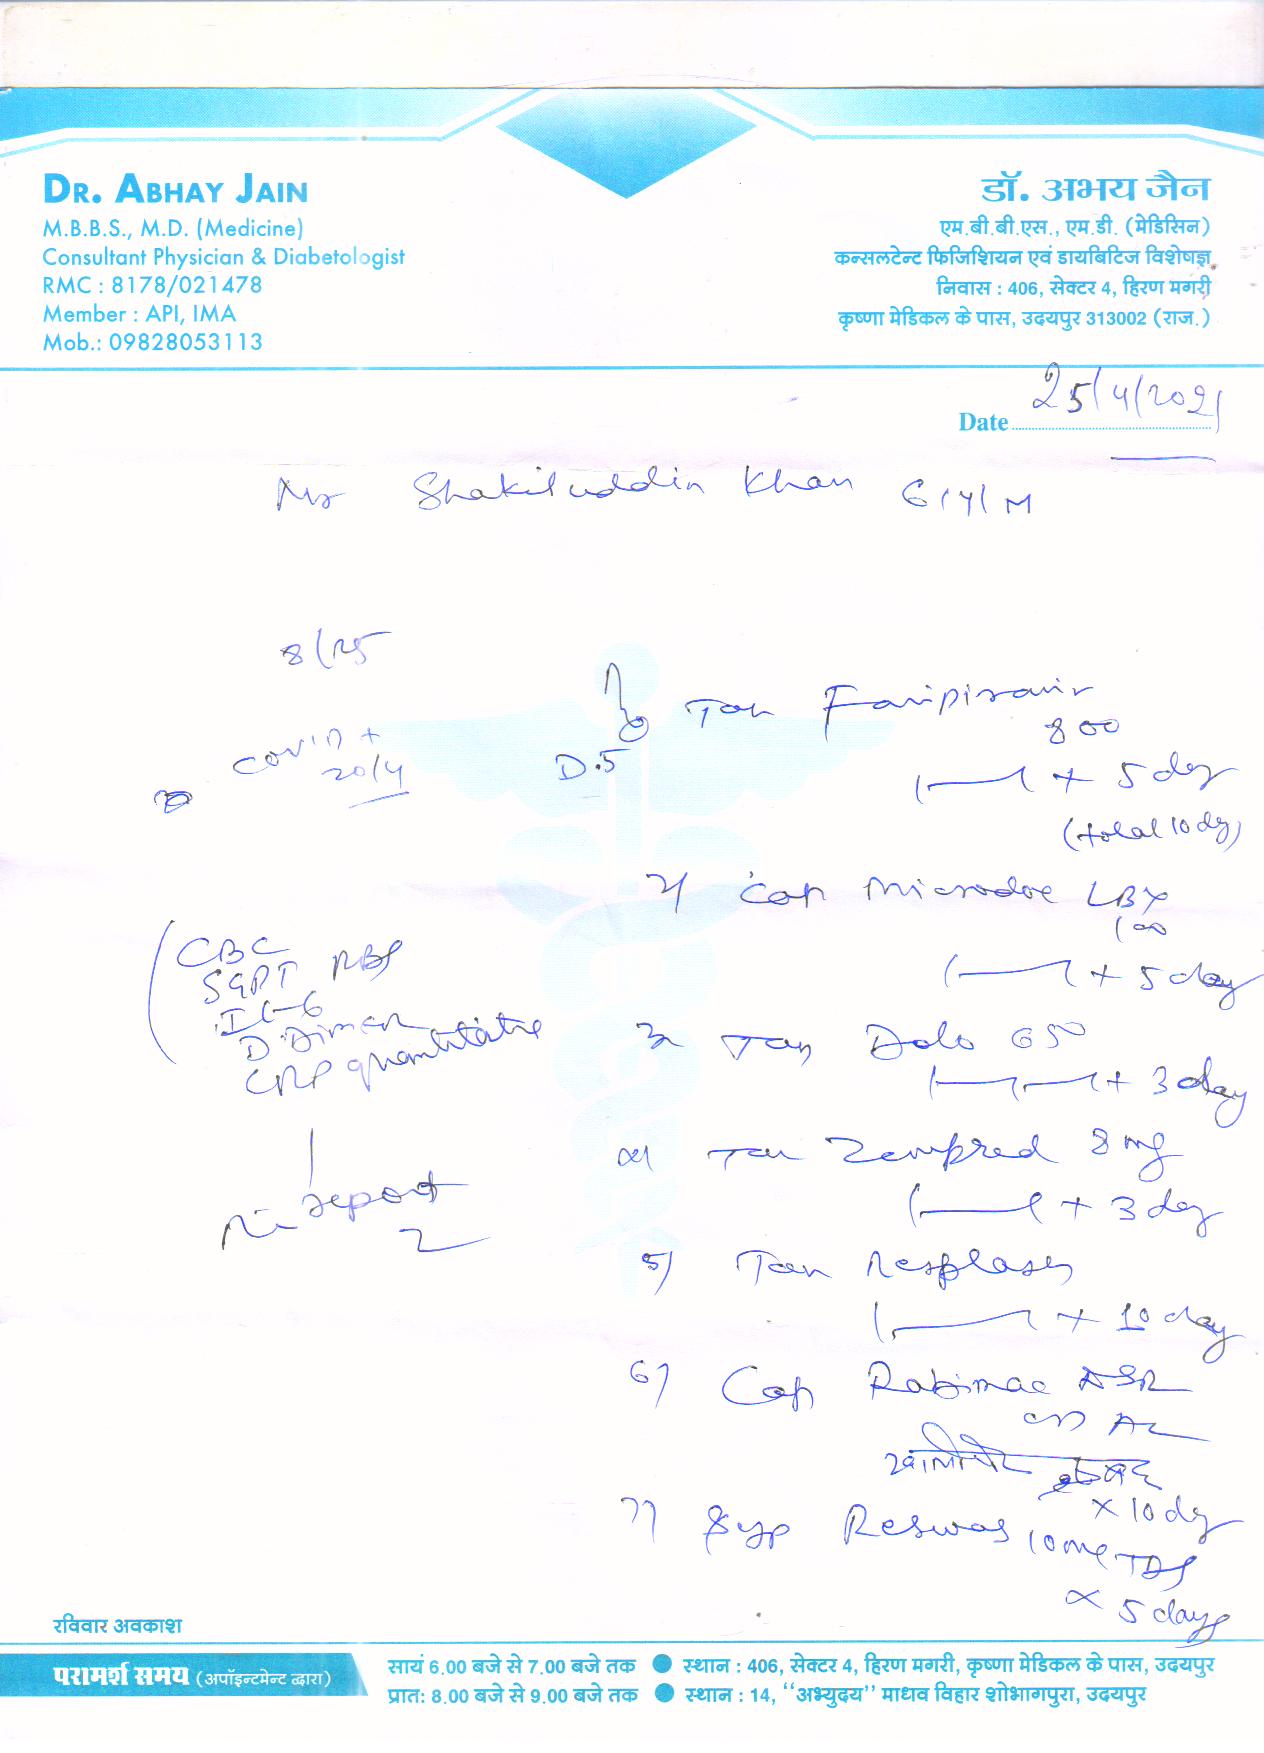 DR. ABHAY JAIN
M.B.B.S., M.D. (Medicine)
Consultant Physician & Diabetologist
RMC : 8178/021478
Member : API, IMA
Mob.: 09828053113
डॉ. अभय जैन
एम.बी.बी.एस., एम.डी. (मेडिसिन)
कन्सलटेन्ट फिजिशियन एवं डायबिटिज विशेषज्ञ
निवास : 406, सेक्टर 4, हिरण मगरी
कृष्णा मेडिकल के पास, उदयपुर 313002 (राज.)
Date 25/4/2021
Mr Shakiluddin Khan 61y/M
covid +
20/4
D.5
CBC
SGPT RBS
IL-6
D.Dimer
CRP quantitative
report
Tab Favipiravir
800
+ 5 day
(total 10 day)
2) Cap Microdox LBX
100
+ 5 day
3) Tab Dolo 650
+ 3 day
4) Tab Zempred 8 mg
+ 3 day
5) Tab
+ 10 day
6) Cap Rabimac DSR
खाली पेट
x 10 day
7) Syp Reswas 10ml TDS
x 5 days
रविवार अवकाश
परामर्श समय (अपॉइन्टमेन्ट द्वारा)
सायं 6.00 बजे से 7.00 बजे तक ● स्थान : 406, सेक्टर 4, हिरण मगरी, कृष्णा मेडिकल के पास, उदयपुर
प्रात: 8.00 बजे से 9.00 बजे तक ● स्थान : 14, "अभ्युदय" माधव विहार शोभागपुरा, उदयपुर